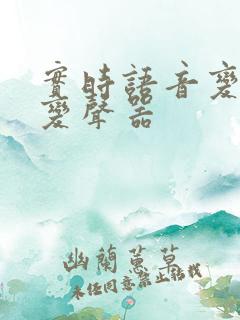 實時語音變
變聲器
幽蘭蕙草
未经同意禁止转载